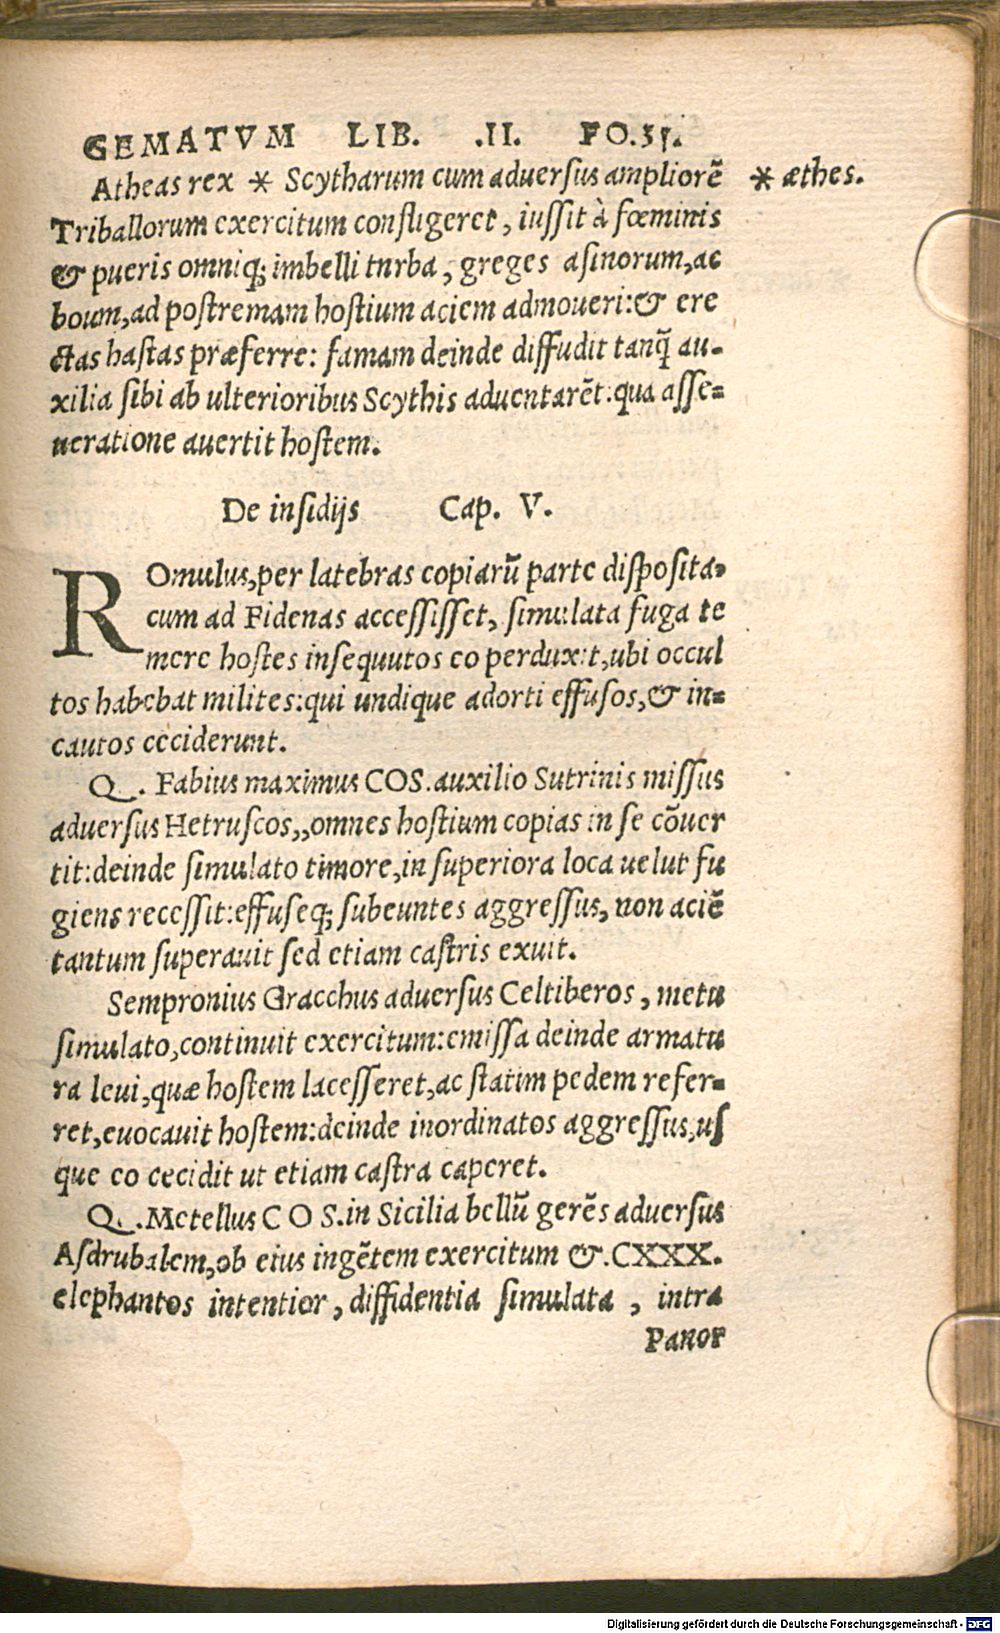 GEMATVM LIB. .II. FO.35.
Atheas rex * Scytharum cum adversus ampliorē * æthes.
Triballorum exercitum confligeret, iussit à fœminis
& pueris omniq; imbelli tnrba, greges asinorum, ac
boum, ad postremam hostium aciem admoveri: & ere
ctas hastas præferre: famam deinde diffudit tanq̃ au-
xilia sibi ab ulterioribus Scythis adventarēt: qua asse-
ueratione avertit hostem.
De insidijs Cap. V.
ROmulus, per latebras copiarũ parte disposita,
cum ad Fidenas accessisset, simulata fuga te
mere hostes insequutos eo perduxit, ubi occul
tos habebat milites: qui undique adorti effusos, & in-
cautos ceciderunt.
Q. Fabius maximus COS. auxilio Sutrinis missus
adversus Hetruscos,, omnes hostium copias in se cōver
tit: deinde simulato timore, in superiora loca uelut fu
giens recessit: effuseq; subeuntes aggressus, non aciē
tantum superavit sed etiam castris exuit.
Sempronius Gracchus adversus Celtiberos, metu
simulato, continuit exercitum: emissa deinde armatu
ra levi, quæ hostem lacesseret, ac statim pedem refer-
ret, evocavit hostem: deinde inordinatos aggressus, us
que eo cecidit ut etiam castra caperet.
Q. Metellus C O S. in Sicilia bellũ gerēs adversus
Asdrubalem, ob eius ingētem exercitum & .CXXX.
elephantos intentior, diffidentia simulata, intra
Panor
Digitalisierung gefördert durch die Deutsche Forschungsgemeinschaft - DFG